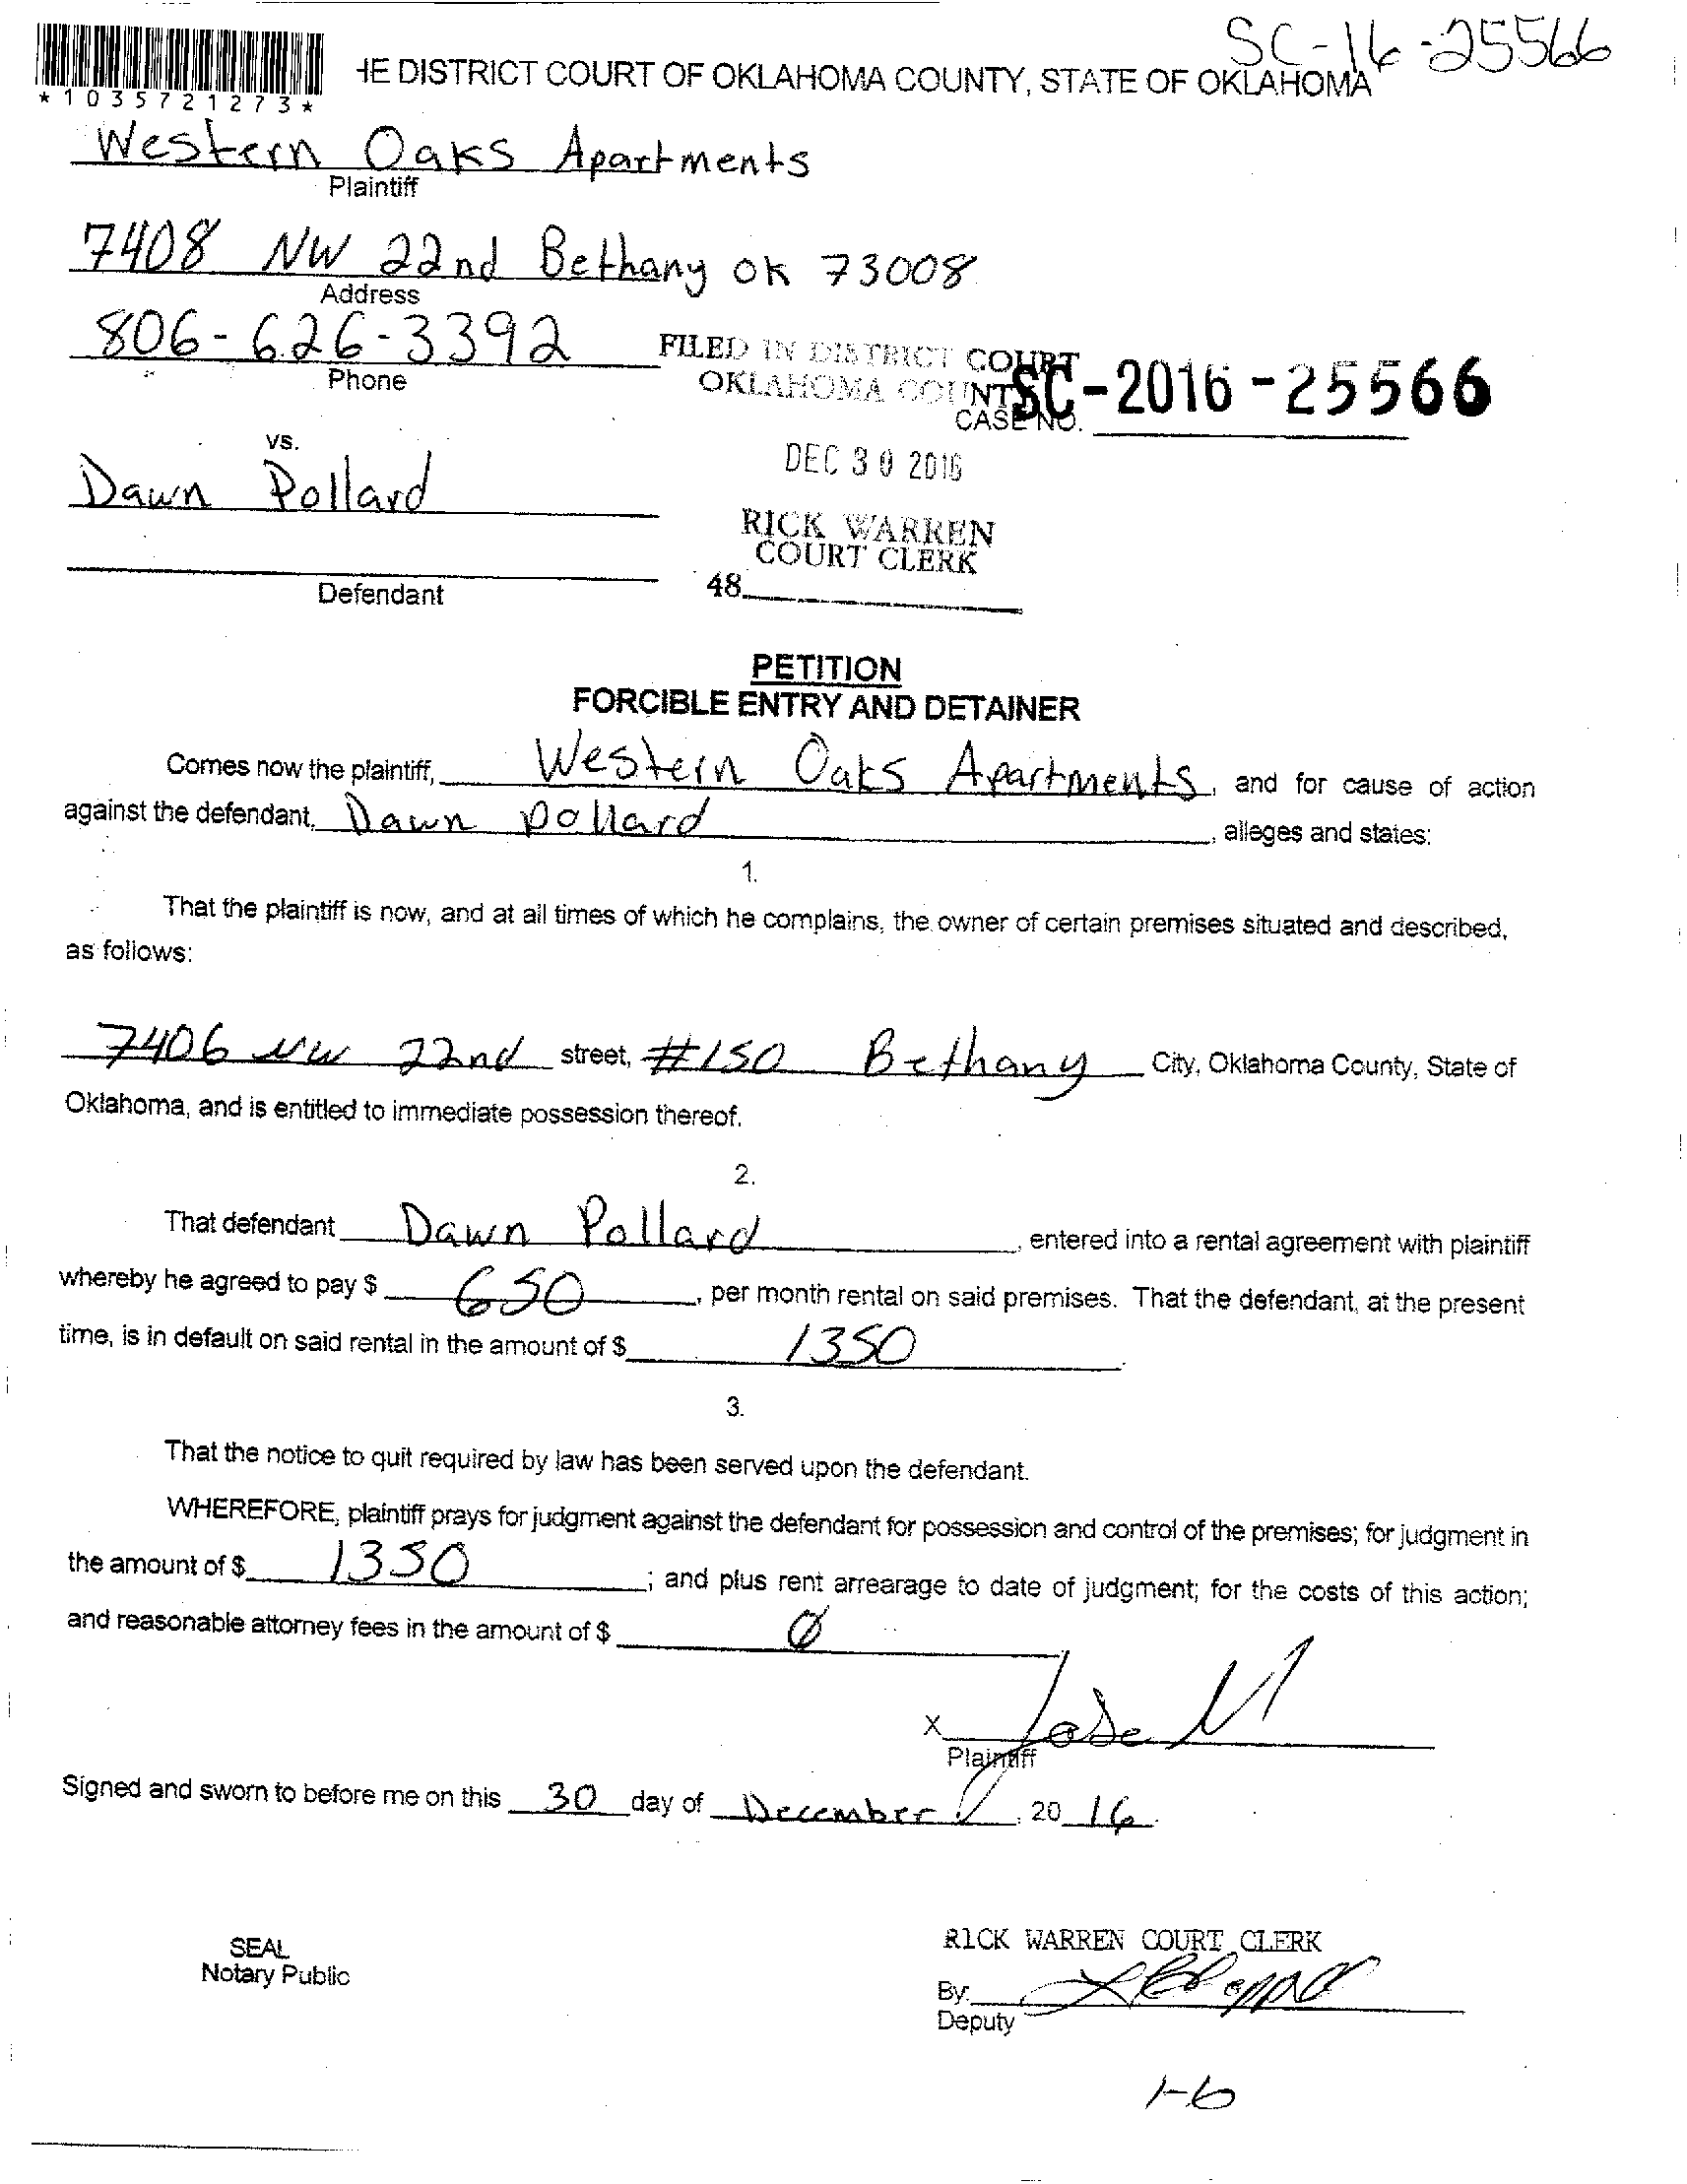 SC-16-25566
*1035721273*
HE DISTRICT COURT OF OKLAHOMA COUNTY, STATE OF OKLAHOMA
Western Oaks Apartments
Plaintiff
7408 NW 22nd Bethany OK 73008
Address
806-626-3392
Phone
FILED IN DISTRICT COURT
OKLAHOMA COUNTY
SC-2016-25566
CASE NO.
vs.
DEC 30 2016
Dawn Pollard
RICK WARREN
COURT CLERK
48
Defendant
PETITION
FORCIBLE ENTRY AND DETAINER
Comes now the plaintiff, Western Oaks Apartments, and for cause of action
against the defendant, Dawn Pollard, alleges and states:
1.
That the plaintiff is now, and at all times of which he complains, the owner of certain premises situated and described,
as follows:
7406 NW 22nd street, #150 Bethany City, Oklahoma County, State of
Oklahoma, and is entitled to immediate possession thereof.
2.
That defendant Dawn Pollard, entered into a rental agreement with plaintiff
whereby he agreed to pay $ 650, per month rental on said premises. That the defendant, at the present
time, is in default on said rental in the amount of $ 1350.
3.
That the notice to quit required by law has been served upon the defendant.
WHEREFORE, plaintiff prays for judgment against the defendant for possession and control of the premises; for judgment in
the amount of $ 1350; and plus rent arrearage to date of judgment; for the costs of this action;
and reasonable attorney fees in the amount of $ 0
X Jose M
Plaintiff
Signed and sworn to before me on this 30 day of December, 20 16.
SEAL
Notary Public
RICK WARREN COURT CLERK
By:
Deputy
1-6